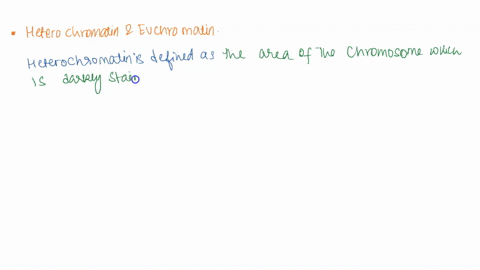 • Heterochromatin & Euchromatin.
Heterochromatin is defined as the area of the chromosome which
is darkly stai